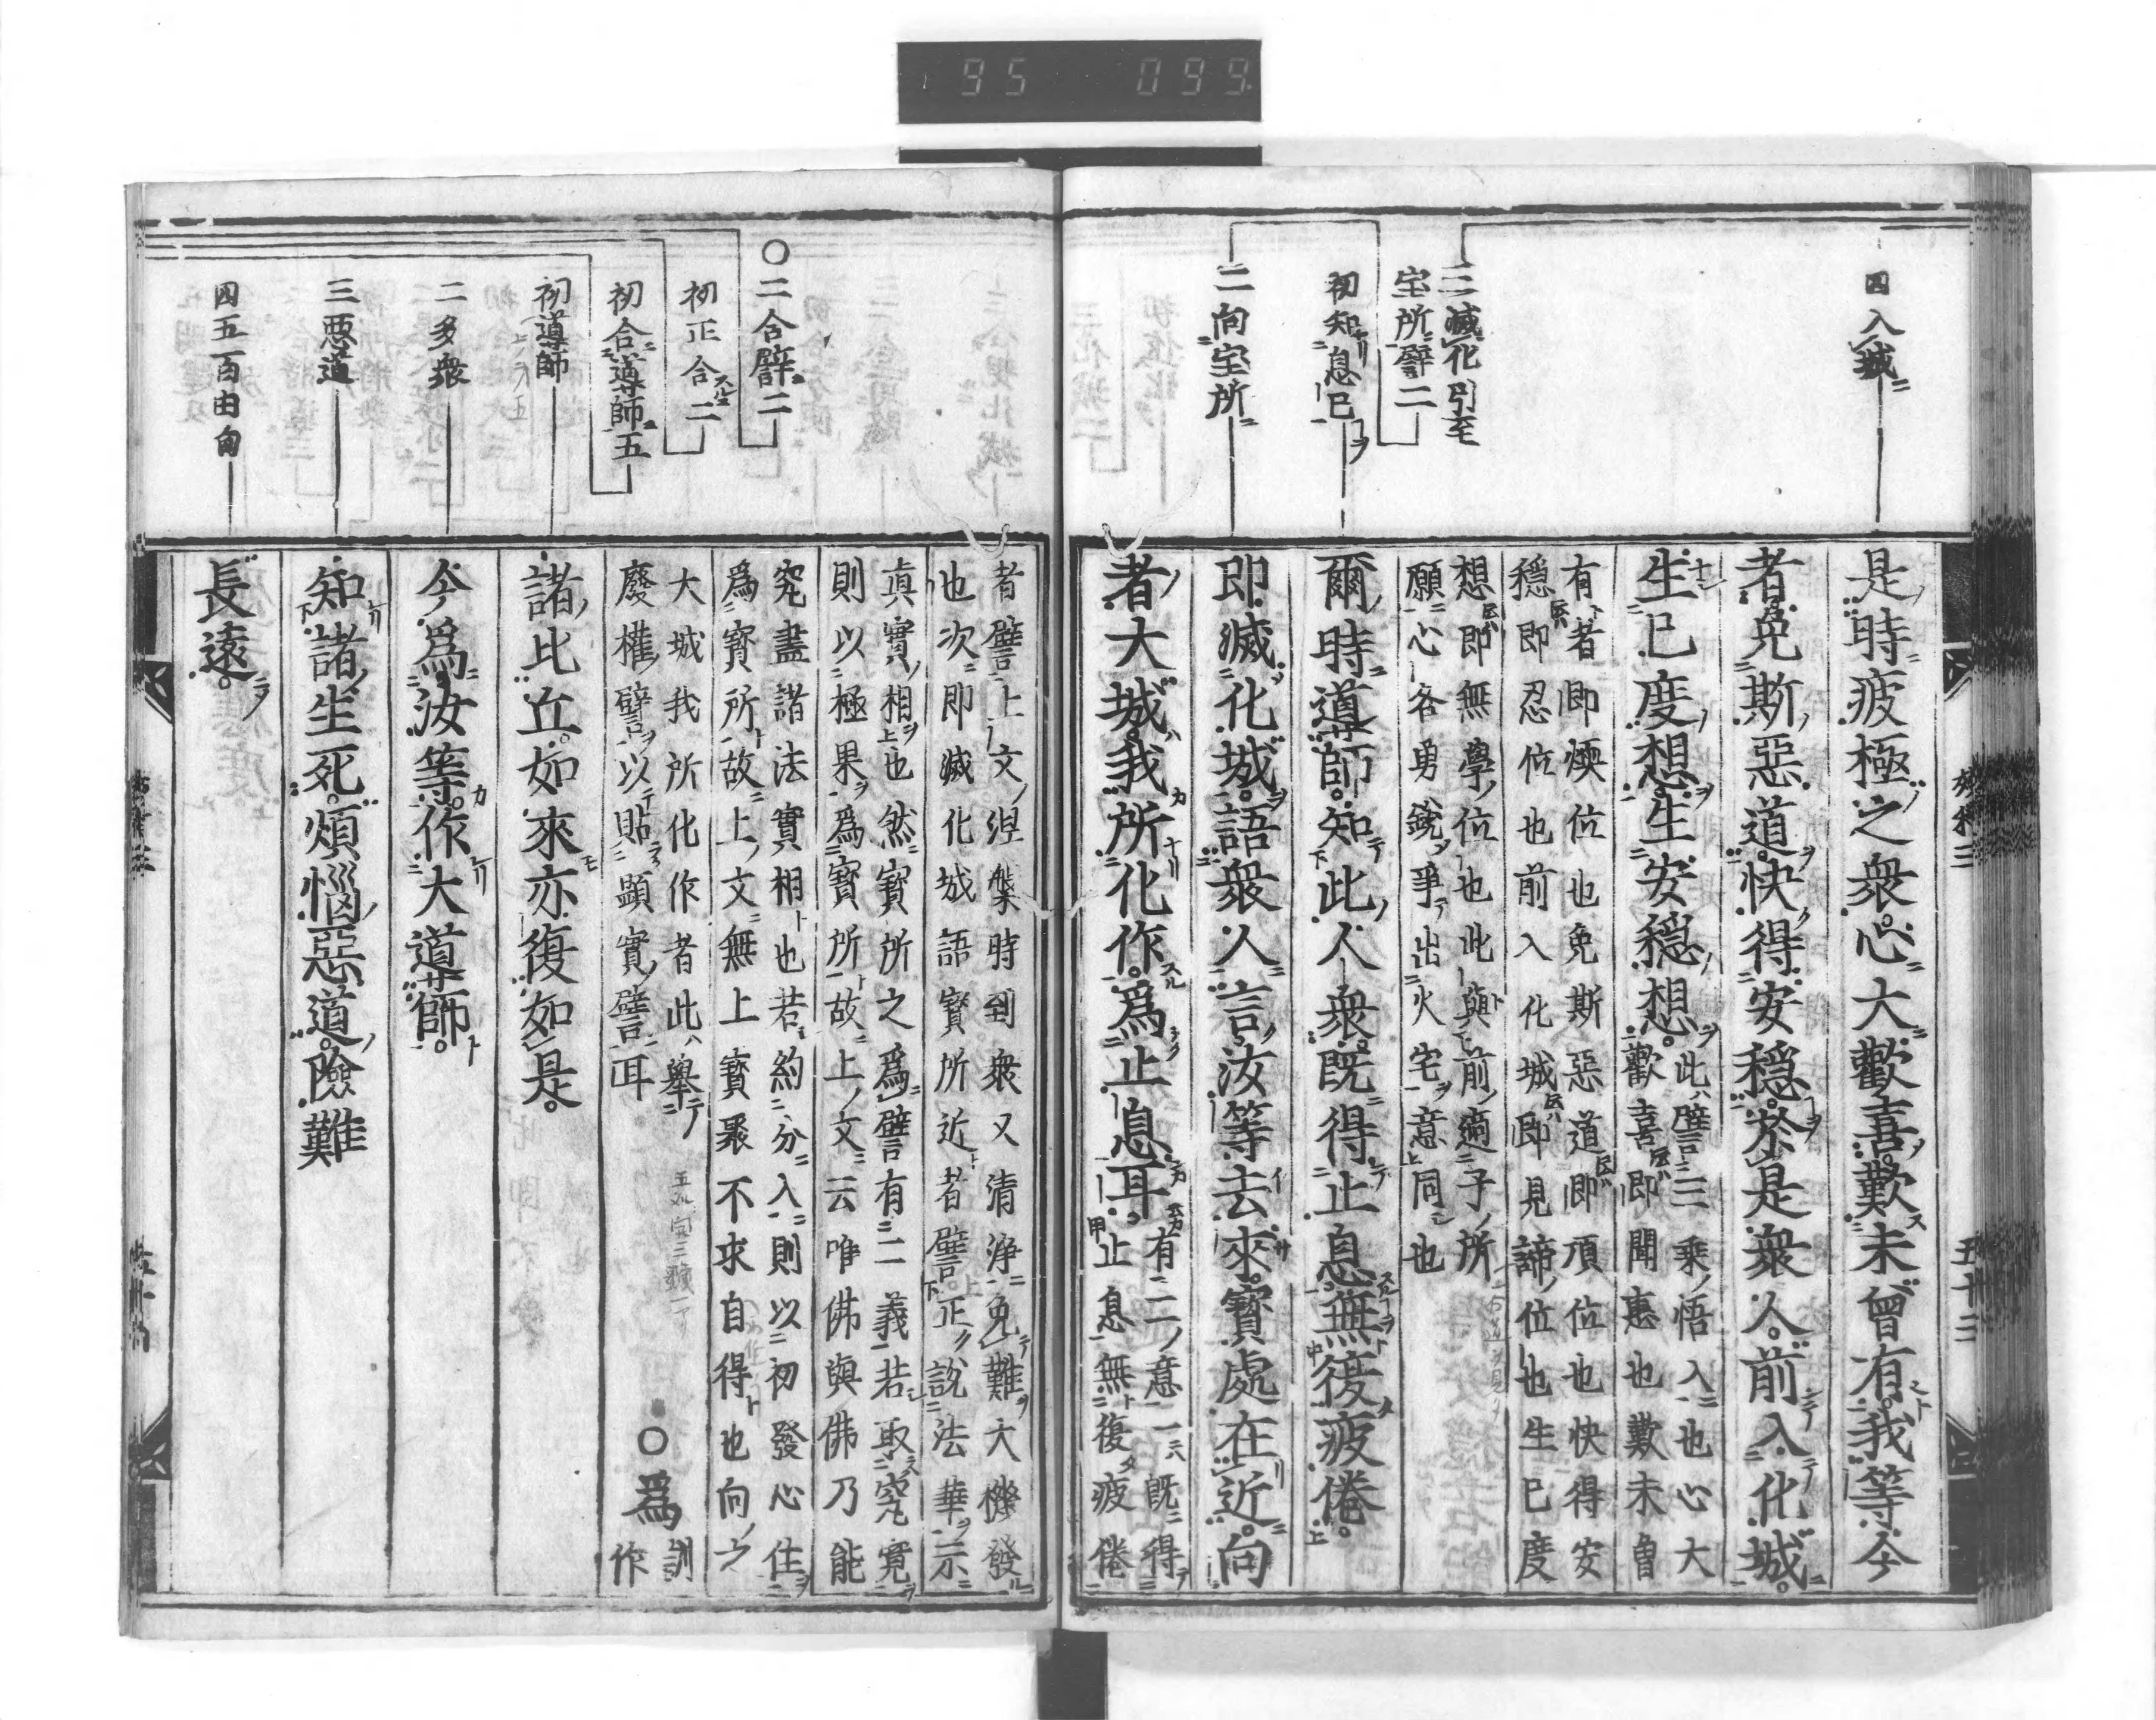 95 099
四入城
三滅化引至
宝所譬二
初知息已
二向宝所
是時疲極之衆心大歡喜歎未曾有我等今
者免斯惡道快得安穩於是衆人前入化城
生已度想生安穩想
此譬三乘悟入也心大
歡喜即聞惠也歎未曾
有者即煗位也免斯惡道即頂位也快得安
穩即忍位也前入化城即見諦位也生已度
想即無學位也此與前適子所
願心各勇銳爭出火宅意同也
爾時導師知此人衆既得止息無復疲倦
即滅化城語衆人言汝等去來寶處在近向
者大城我所化作爲止息耳
有二意一既得
止息無復疲倦
○二合譬二
初正合二
初合導師五
初導師
二多衆
三惡道
四五百由旬
者譬上文涅槃時到衆又清淨免難大機發
也次即滅化城語寶所近者譬正說法華示
眞實相也然寶所之爲譬有二義若取究竟
則以極果爲寶所故上文云唯佛與佛乃能
究盡諸法實相也若約分入則以初發心住
爲寶所故上文無上寶聚不求自得也向之
大城我所化作者此舉
廢權譬以貼顯實譬耳
○爲
訓
作
諸比丘如來亦復如是
今爲汝等作大導師
知諸生死煩惱惡道險難
長遠
五十三